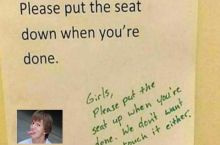 Please put the seat
down when you're
done.
Girls,
Please put the
seat up when you're
done. We don't want
touch it either.